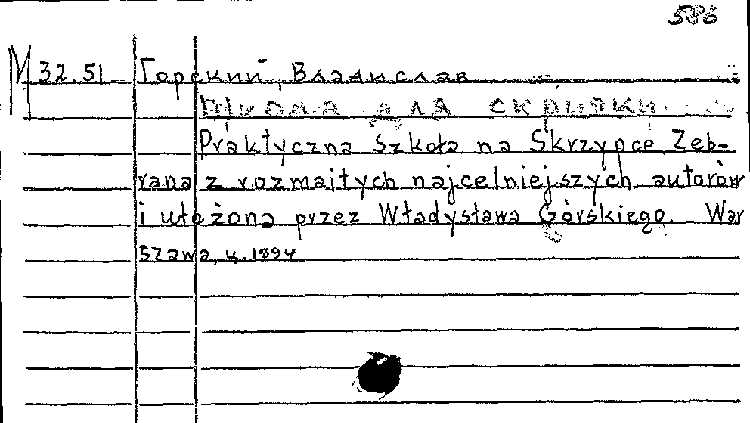 586
M 32.51 Горский, Владислав
Школа для скрипки.
Praktyczna szkoła na Skrzypce Zeb-
rana z rozmaitych najcelniejszych autorów
i ułożona przez Władysława Górskiego. War
szawa, 1894